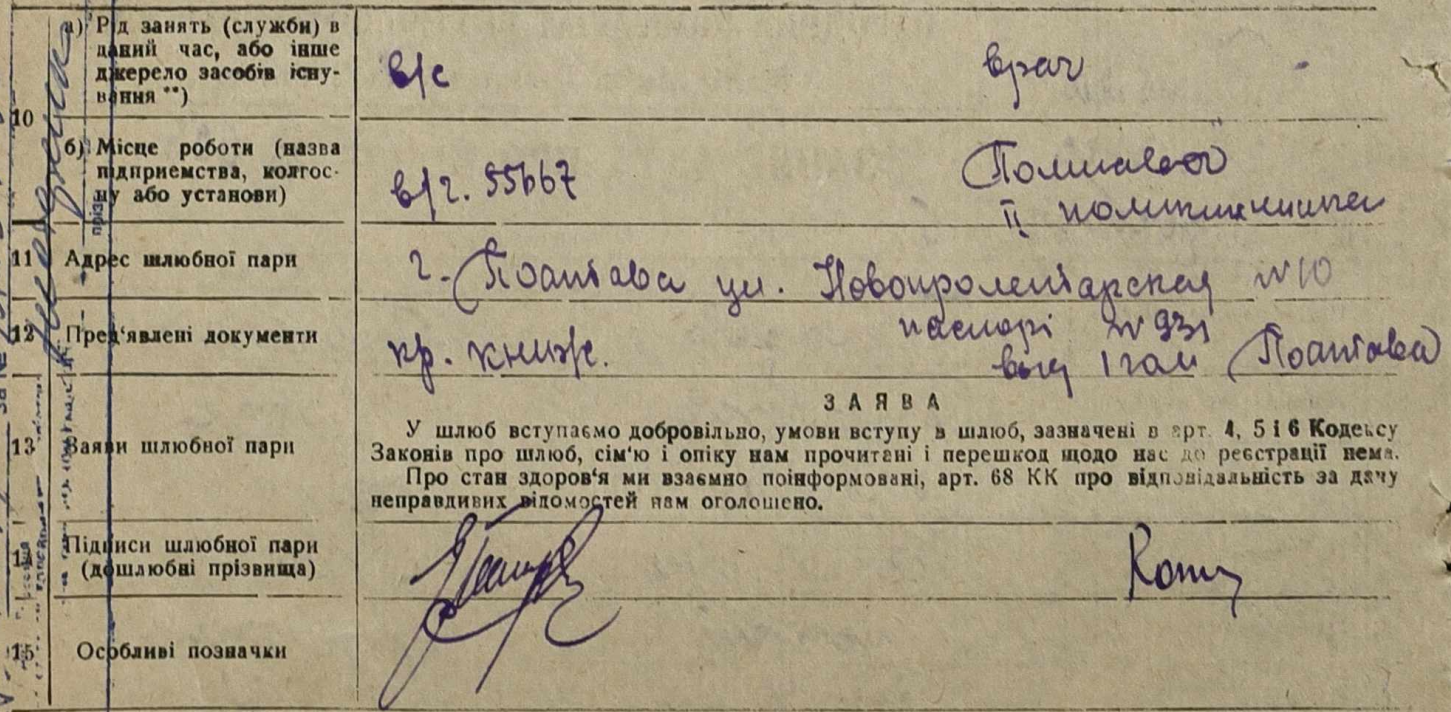 10
а) Рід занять (служби) в
даний час, або інше
джерело засобів існу-
вання **)
в/с
врач
б) Місце роботи (назва
підприємства, колгос-
пу або установи)
в/г. 55667
II поликлиника
11 Адрес шлюбної пари
г. Полтава ул. Новопролетарская №10
12 Пред'явлені документи
кр. книж.
паспорт № 931
выд 1 гом Полтава
13 Заяви шлюбної пари
ЗАЯВА
У шлюб вступаємо добровільно, умови вступу в шлюб, зазначені в арт. 4, 5 і 6 Кодексу
Законів про шлюб, сім'ю і опіку нам прочитані і перешкод щодо нас до реєстрації нема.
Про стан здоров'я ми взаємно поінформовані, арт. 68 КК про відповідальність за дачу
неправдивих відомостей нам оголошено.
14 Підписи шлюбної пари
(дошлюбні прізвища)
15 Особливі позначки